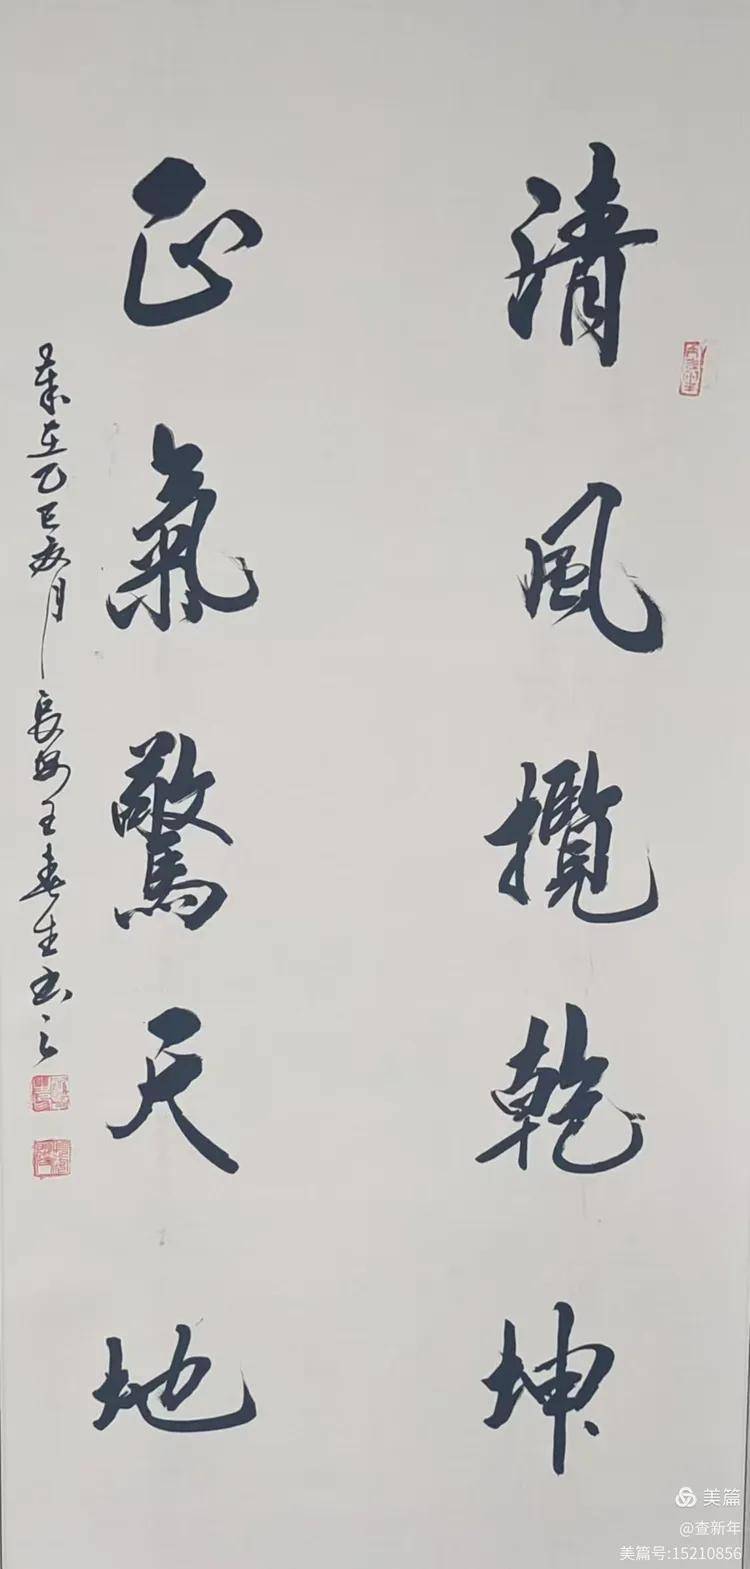 清風攬乾坤
正氣驚天地
歲在乙巳夜月長安王春生书之
美篇
@查新年
美篇号:15210856